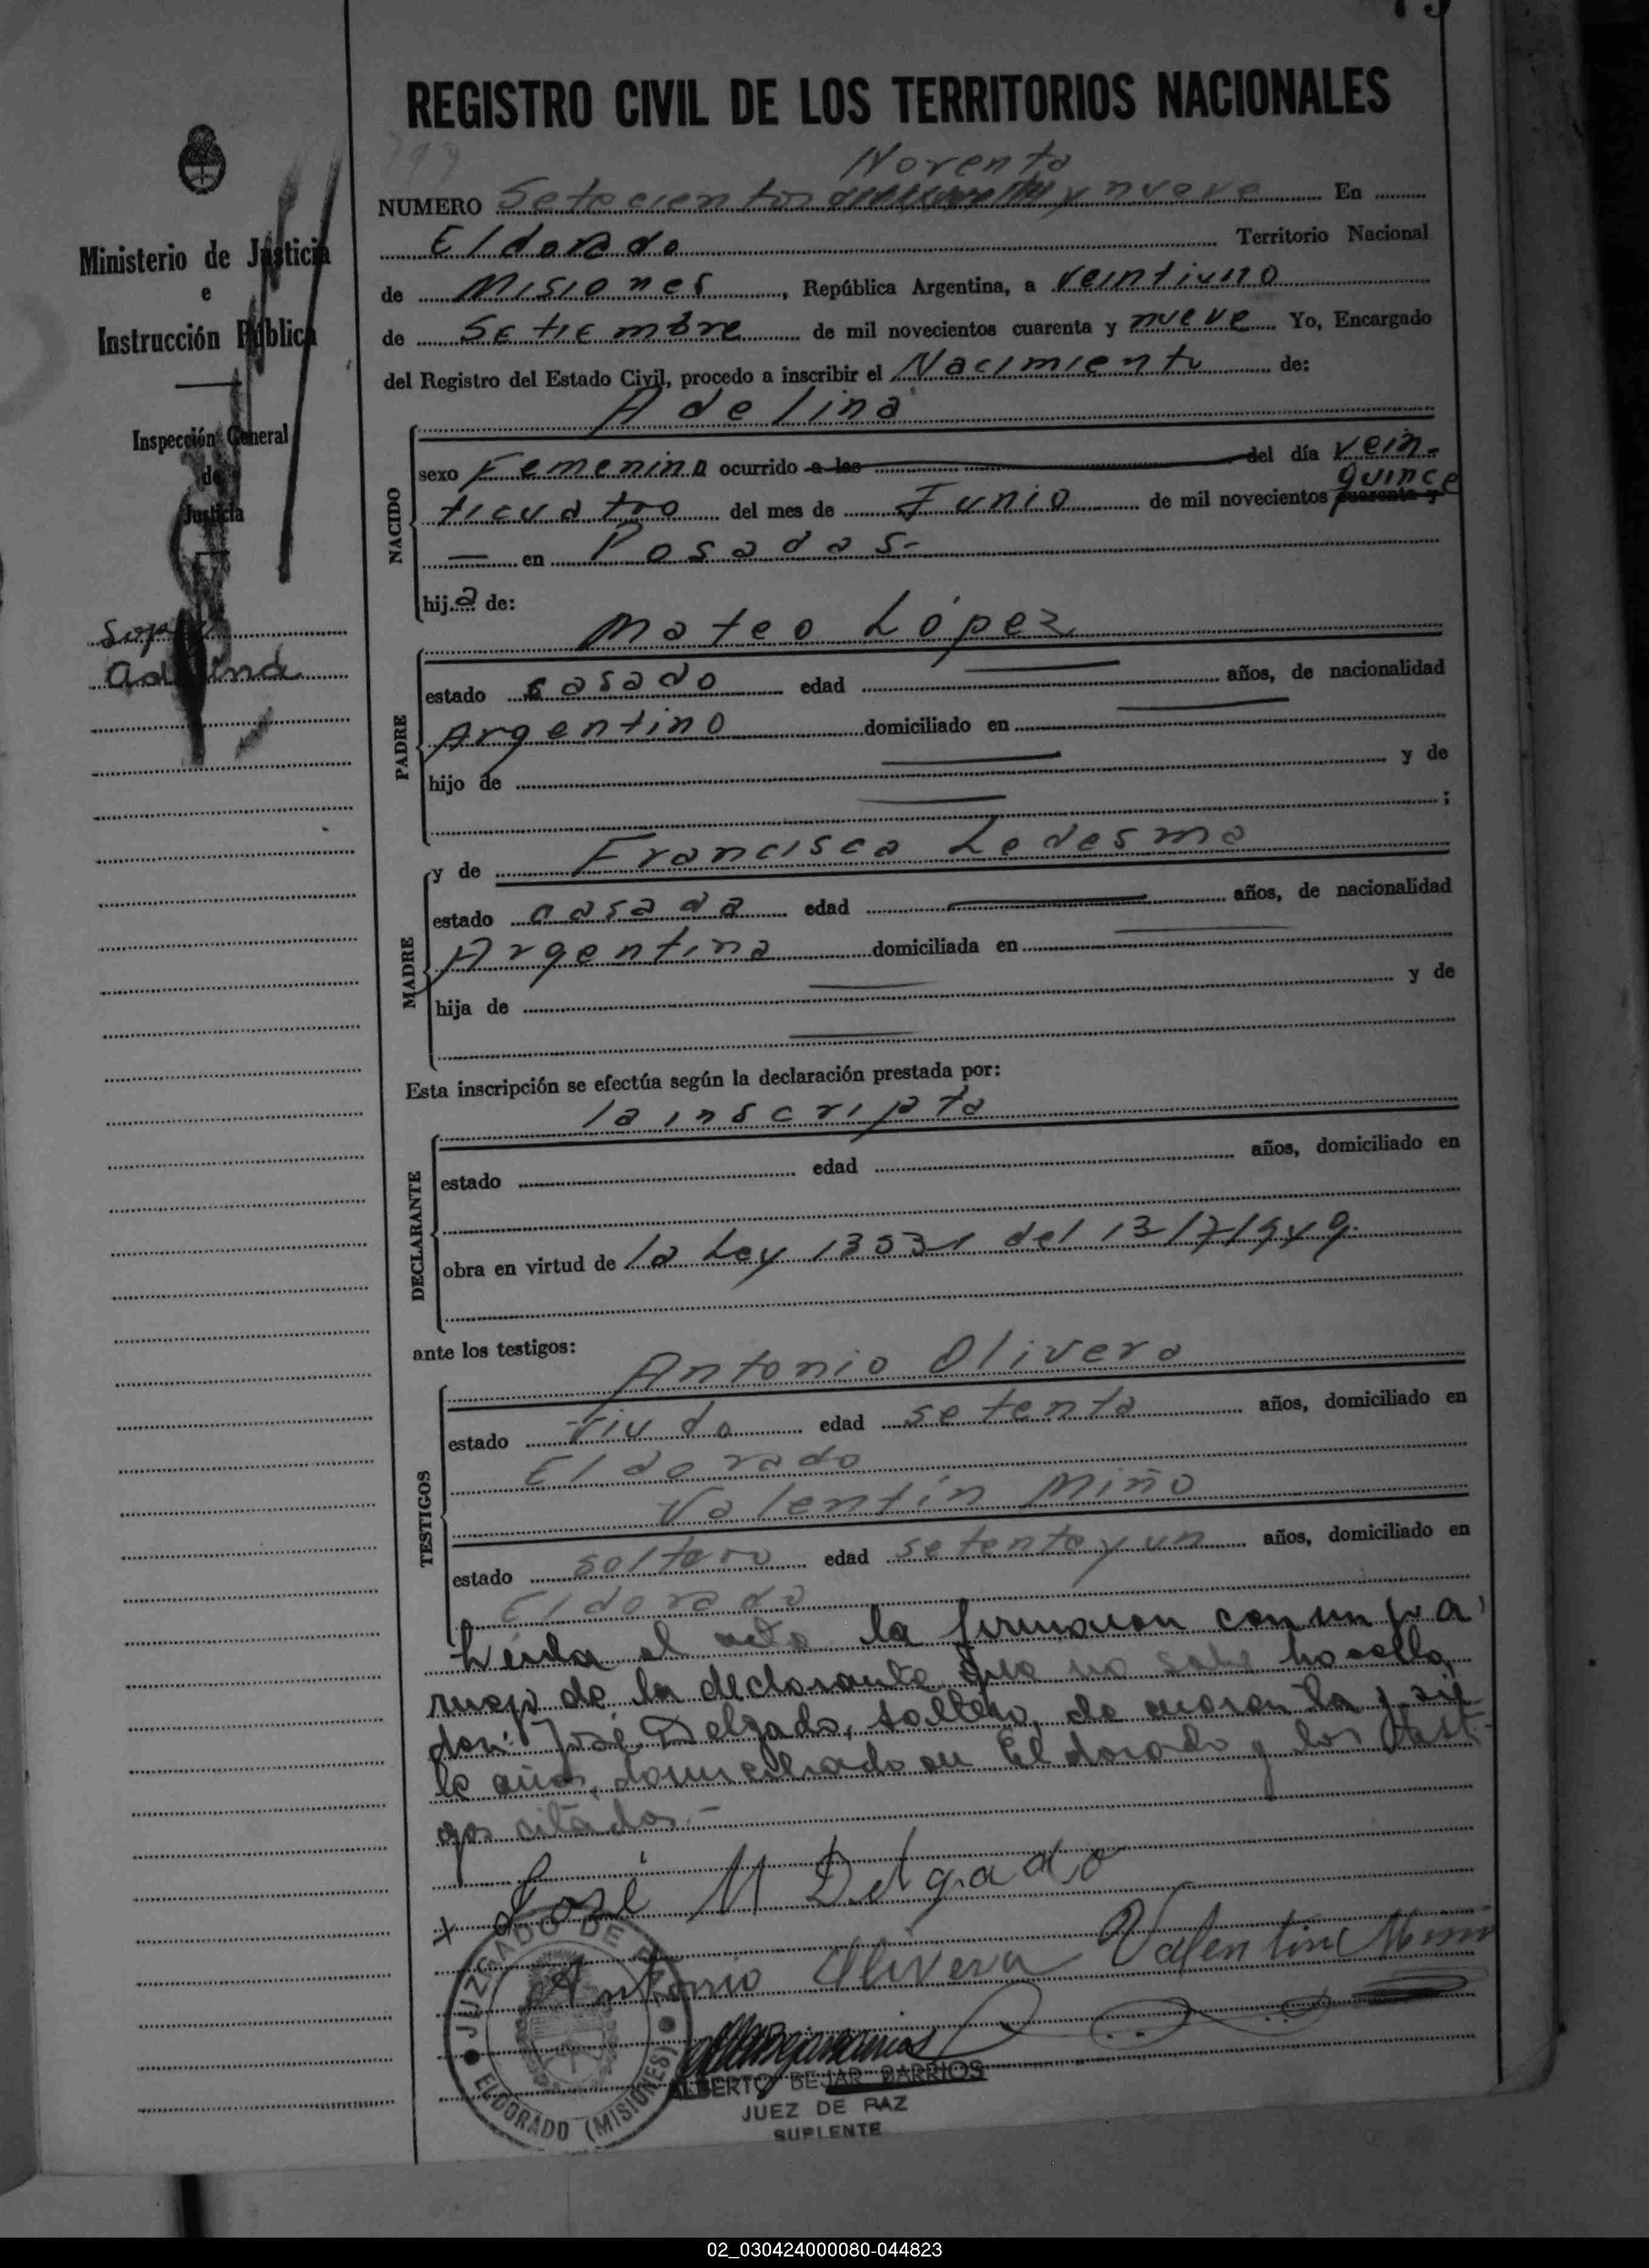 REGISTRO CIVIL DE LOS TERRITORIOS NACIONALES
799
Ministerio de Justicia
e
Instrucción Pública
Inspección General
de
Justicia
Adelina
Noventa
NUMERO Setecientos y nueve En
Eldorado Territorio Nacional
de Misiones, República Argentina, a veintiuno
de Setiembre de mil novecientos cuarenta y nueve Yo, Encargado
del Registro del Estado Civil, procedo a inscribir el Nacimiento de:
NACIDO
Adelina
sexo Femenino ocurrido a las del día vein-
quince
ticuatro del mes de Junio de mil novecientos cuarenta y
en Posadas-
hija de:
PADRE
Mateo López
estado casado edad años, de nacionalidad
Argentino domiciliado en
hijo de y de
;
MADRE
y de Francisca Ledesma
estado casada edad años, de nacionalidad
Argentina domiciliada en
hija de y de
Esta inscripción se efectúa según la declaración prestada por:
DECLARANTE
la inscripta
estado edad años, domiciliado en
obra en virtud de la Ley 13531 del 13/7/949.
ante los testigos:
TESTIGOS
Antonio Olivera
estado Viudo edad setenta años, domiciliado en
Eldorado
Valentín Miño
estado soltero edad setenta y un años, domiciliado en
Eldorado
Leida el acta la firmaron conmigo a
ruego de la declarante que no sabe hacerlo,
don: José Delgado, soltero, de cuarenta y sie
te años, domiciliado en Eldorado y los testi-
gos citados.-
+ José M Delgado
Antonio Olivera Valentin Miño
JUZGADO DE
ELDORADO (MISIONES)
ALBERTO BEJAR BARRIOS
JUEZ DE PAZ
SUPLENTE
02_030424000080-044823